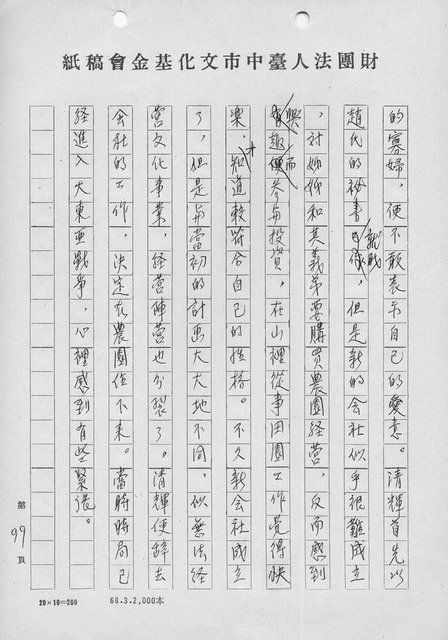 財團法人臺中市文化基金會稿紙
的寡婦，便不敢表示自己的愛意。清輝首先以
趙代的秘書就職，但是新的會社似乎很難成立
，討妳妳和其義弟要購買農園經營，反而感到
興趣而參與投資，在山裡從事田園工作覺得快
樂，才知道較符合自己的性格。不久新會社成立
了，但是與當初的計畫大大地不同，似無法經
營文化事業，經營陣營也分裂了。清輝便辭去
會社的工作，決定在農園住下來。當時時局已
經進入大東亞戰爭，心裡感到有些緊張。
第99頁
20×10=200
68.3.2,000本